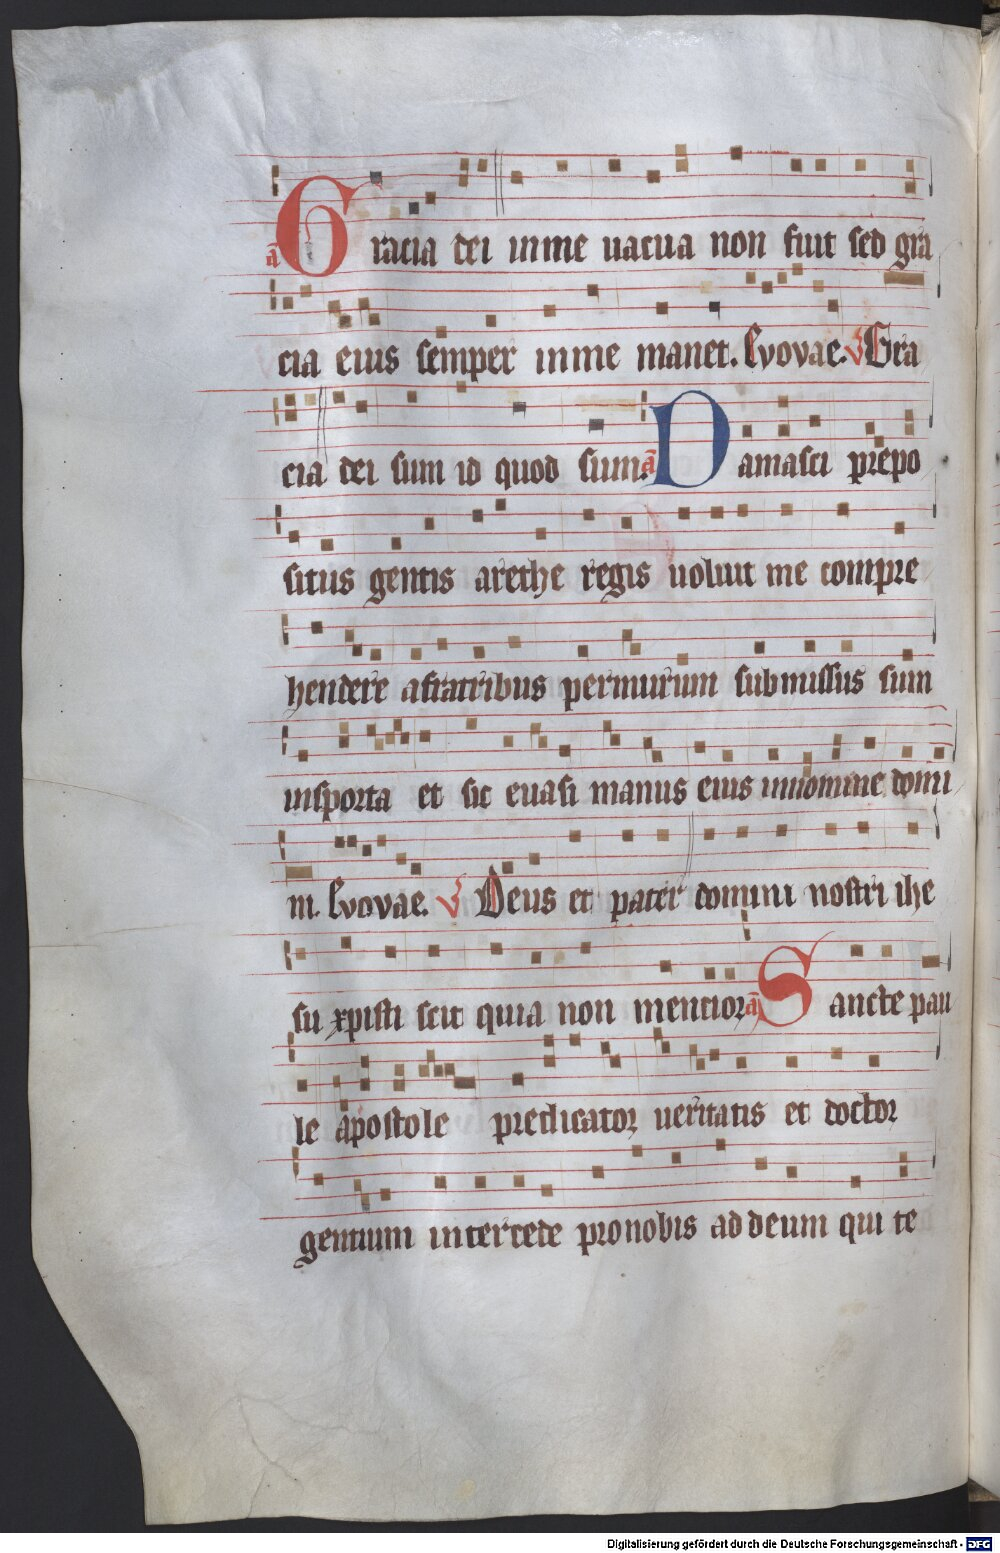 ā Gracia dei in me uacua non fuit sed gra
cia eius semper in me manet. Evovae. V Gra
cia dei sum id quod sum. ā Damasci prepo
situs gentis arethe regis uoluit me compre
hendere a fratribus per murum submissus sum
in sporta et sic euasi manus eius in nomine domi
ni. Evovae. V Deus et pater domini nostri ihe
su xpisti scit quia non mentior ā Sancte pau
le apostole predicator ueritatis et doctor
gentium intercede pro nobis ad deum qui te
Digitalisierung gefördert durch die Deutsche Forschungsgemeinschaft - DFG